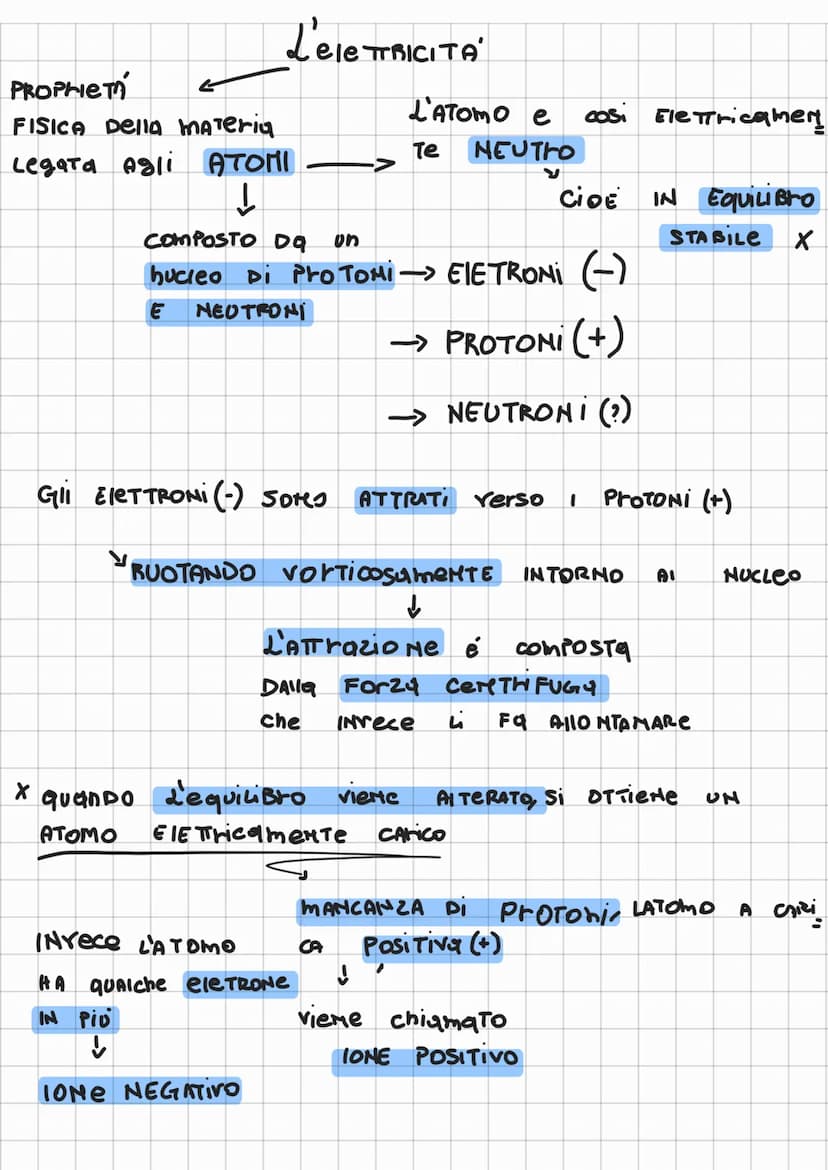 L'elettricità
Proprietà
fisica della materia
legata agli ATOMI
L'atomo e cosi elettricamen
te NEUTRO
cioè in Equilibro
STABILE x
composto da un
nucleo di protoni
E NEUTRONI
Eletroni (-)
PROTONI (+)
NEUTRONI (?)
Gli elettroni (-) sono ATTRATI verso i Protoni (+)
RUOTANDO vorticosamente intorno al nucleo
L'attrazione é composta
dalla Forza centrifuga
che invece li fa allontanare
x quando l'equilibro viene alterato, si ottiene un
atomo elettricamente carico
MANCANZA di protoni, latomo a cari
ca positiva (+)
viene chiamato
IONE POSITIVO
Invece l'atomo
ha qualche eletrone
in più
IONE NEGATIVO